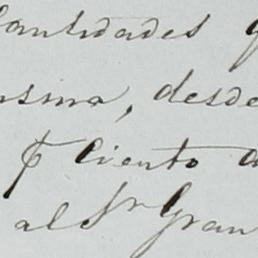 Cantidades
desde
p Ciento
al Sr Gran